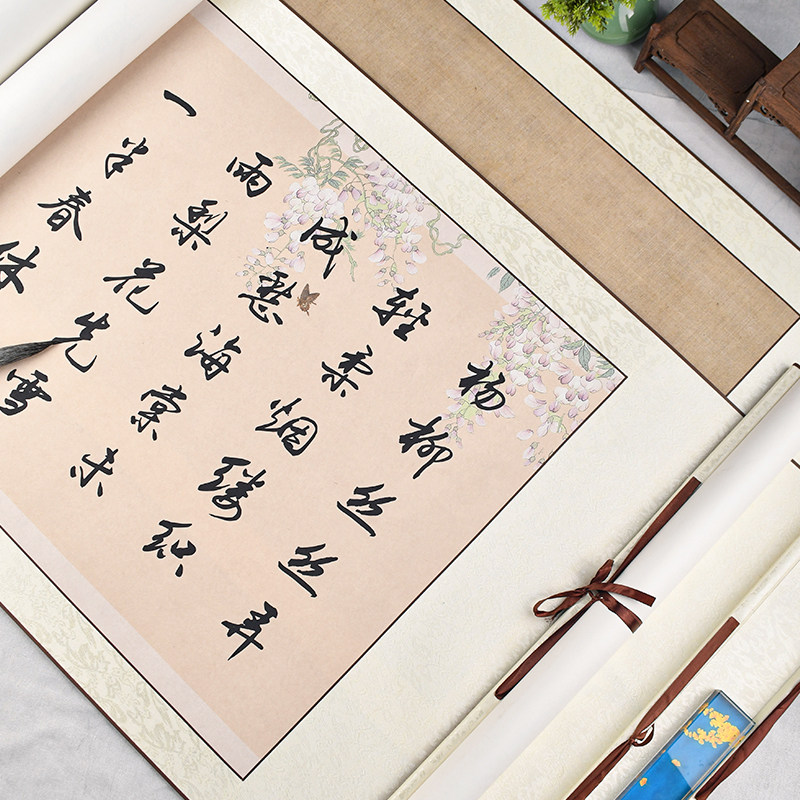 杨柳丝丝弄
轻柔烟缕织
成愁海棠未
雨梨花先雪
一半春休